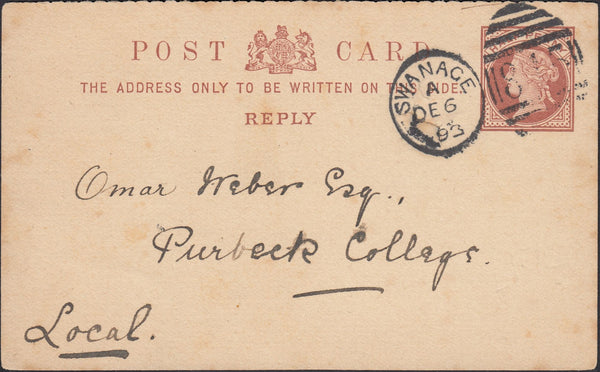 POST CARD
THE ADDRESS ONLY TO BE WRITTEN ON THIS SIDE.
REPLY
SWANAGE
A
DE 6
93
Omar Weber Esq.,
Purbeck College.
Local.